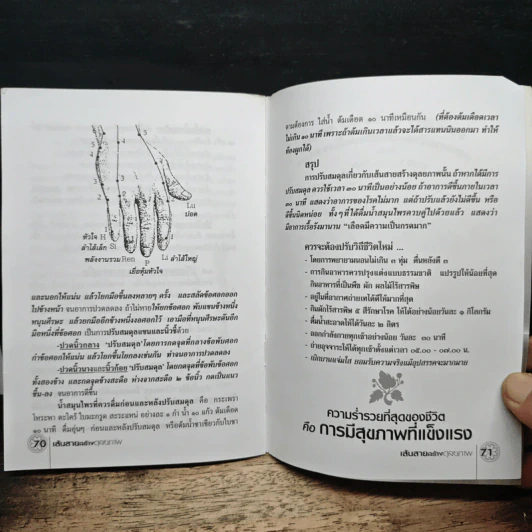 5
4
3
2
1
Lu
ปอด
หัวใจ H
Si
ลำไส้เล็ก
พลังงานรวม Ren
P
Li ลำไส้ใหญ่
เยื่อหุ้มหัวใจ
และนอกให้แน่น แล้วโยกมือขึ้นลงหลายๆ ครั้ง และสลัดข้อศอกออก
ไปข้างหน้า จนอาการปวดลดลง ถ้าไม่หายให้ยกข้อศอก พับแขนข้างหนึ่ง
หนุนศีรษะ แล้วยกมืออีกข้างหนึ่งงอศอกไว้ เอามือที่หนุนศีรษะดันอีก
มือหนึ่งที่ข้อศอก เป็นการปรับสมดุลแขนและนิ้วชี้ด้วย
-ปวดนิ้วกลาง 'ปรับสมดุล' โดยการกดจุดที่กลางข้อพับศอก
กำข้อศอกให้แน่น แล้วโยกขึ้นโยกลงเช่นกัน ทำจนอาการปวดลดลง
-ปวดนิ้วนางและนิ้วก้อย 'ปรับสมดุล' โดยกดจุดที่ข้อพับข้อศอก
ทั้งสองข้าง และกดจุดข้างสะดือ ห่างจากสะดือ ๒ ข้อนิ้ว กดเป็นแนว
ขึ้น-ลง จนอาการดีขึ้น
น้ำสมุนไพรที่ควรดื่มก่อนและหลังปรับสมดุล คือ กระเพรา
โหระพา ตะไคร้ ใบมะกรูด สะระแหน่ อย่างละ ๑ กำ น้ำ ๑๐ แก้ว ต้มเดือด
๑๐ นาที ดื่มอุ่นๆ ก่อนและหลังปรับสมดุล หรือต้มน้ำชาเขียวกับใบชา
70 เส้นสายลิขิตดุลยภาพ
ตามต้องการ ใส่น้ำ ต้มเดือด ๑๐ นาทีเหมือนกัน (ที่ต้องต้มเดือดเวลา
ไม่เกิน ๑๐ นาที เพราะถ้าต้มเกินเวลาแล้วจะได้สารแทนนินออกมา ทำให้
ท้องผูกได้)
สรุป
การปรับสมดุลเกี่ยวกับเส้นสายสร้างดุลยภาพนั้น ถ้าหากได้มีการ
ปรับสมดุล ควรใช้เวลา ๓๐ นาทีเป็นอย่างน้อย ถ้าอาการดีขึ้นภายในเวลา
๓๐ นาที แสดงว่าอาการของโรคไม่มาก แต่ถ้าปรับแล้วยังไม่ดีขึ้น หรือ
ดีขึ้นนิดหน่อย ทั้งๆ ที่ได้ดื่มน้ำสมุนไพรควบคู่ไปด้วยแล้ว แสดงว่า
มีอาการเรื้อรังมานาน "เลือดมีความเป็นกรดมาก"
ควรจะต้องปรับวิถีชีวิตใหม่ ...
- โดยการพยายามนอนไม่เกิน ๓ ทุ่ม ตื่นหลังตี ๓
- การกินอาหารควรปรุงแต่งแบบธรรมชาติ แปรรูปให้น้อยที่สุด
กินอาหารที่เป็นพืช ผัก ผลไม้ไร้สารพิษ
- อยู่ในที่อากาศถ่ายเทได้ดีให้มากที่สุด
- กินผักไร้สารพิษ ๕ สีรักษาโรค ให้ได้อย่างน้อยวันละ ๑ กิโลกรัม
- ดื่มน้ำสะอาดให้ได้วันละ ๒ ลิตร
- ออกกำลังกายทุกเช้าอย่างน้อย วันละ ๓๐ นาที
- ถ่ายอุจจาระให้ได้ทุกเช้าตั้งแต่เวลา ๐๕.๐๐ - ๐๗.๐๐ น.
- เบิกบานแจ่มใส ยอมรับความจริงแม้อุปสรรคจะมากมาย
ความร่ำรวยที่สุดของชีวิต
คือ การมีสุขภาพที่แข็งแรง
เส้นสายลิขิตดุลยภาพ 71